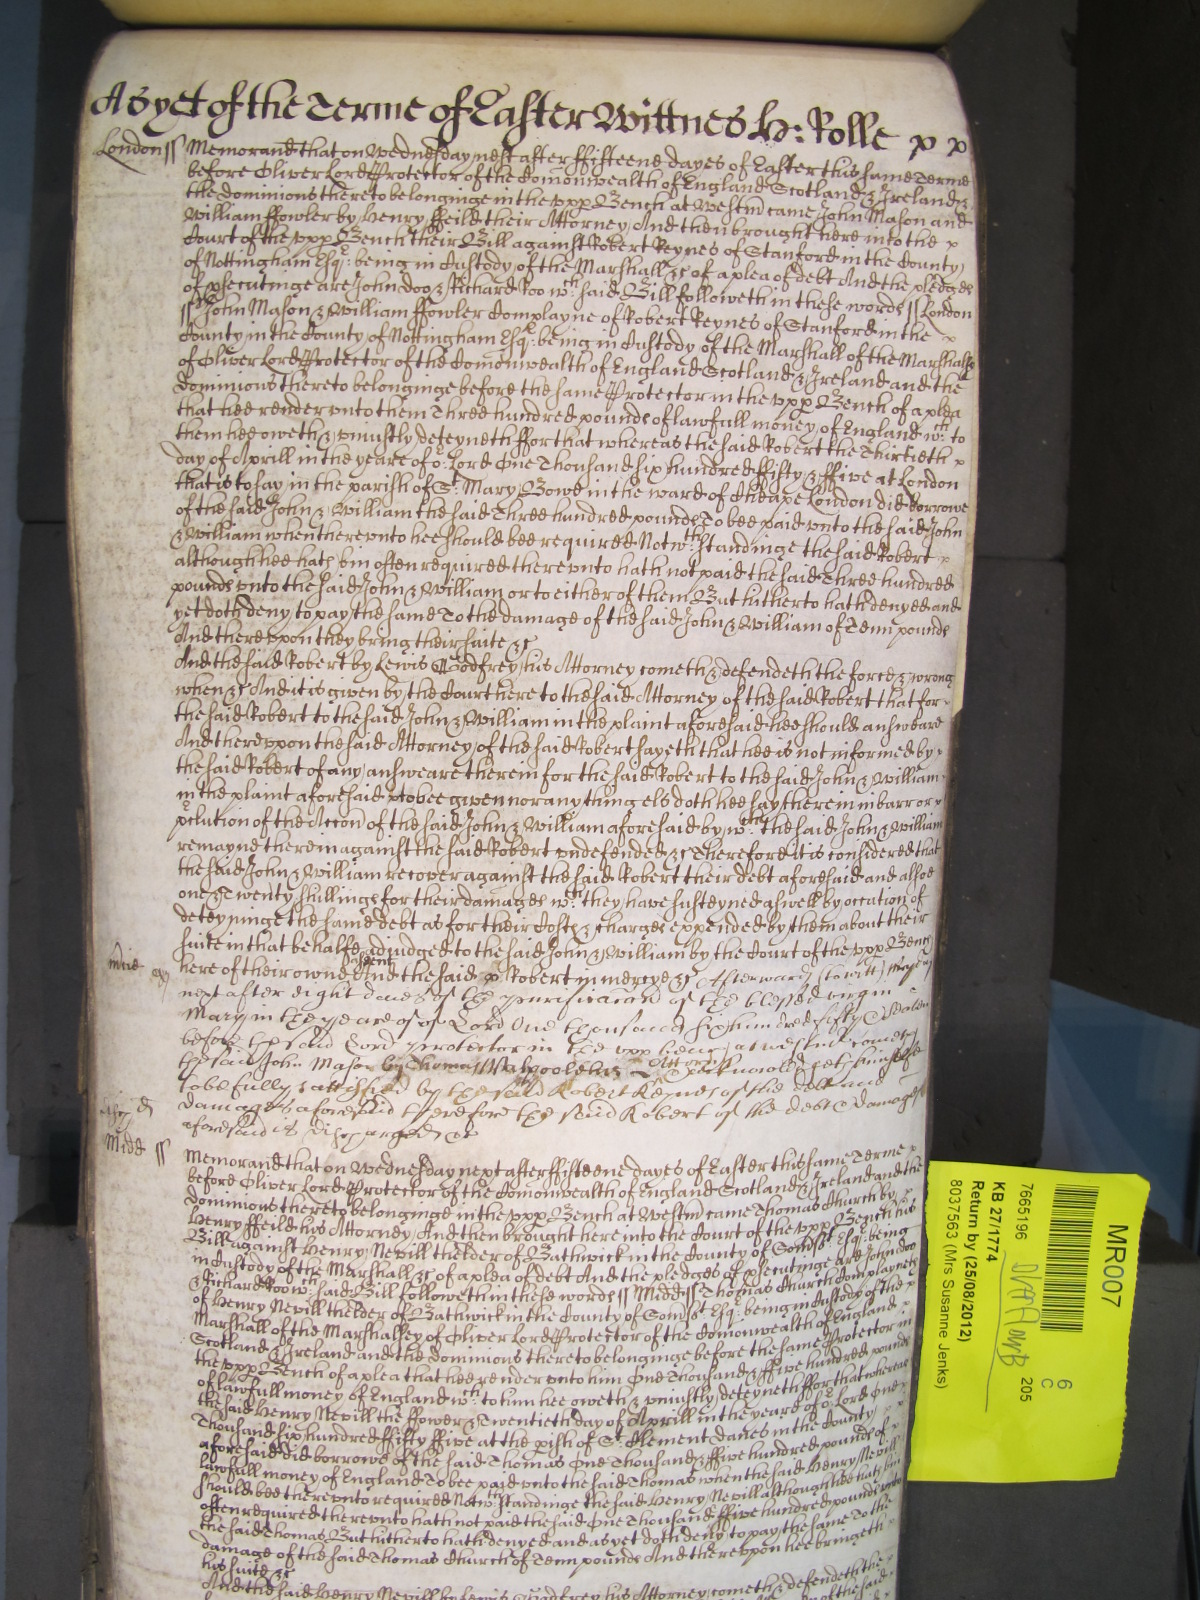 As yet of the Terme of Easter Wittnes H: Rolle
London ss Memorand that on Wednesday next after ffifteene dayes of Easter this same Terme
before Oliver Lord Protector of the Comonwealth of England Scotland & Ireland &
the Dominions thereto belonginge in the upp Bench at Westm came John Mason and
William ffowler by Henry ffeild their Attorney And then brought here into the
Court of the upp Bench their Bill against Robert Reynes of Stanford in the County
of Nottingham Esqr: being in Custody of the Marshall &c of a plea of debt And the pledges
of psecutinge are John Doo & Richard Roo wch said Bill followeth in these words ss London
ss John Mason & William ffowler Complayne of Robert Reynes of Stanford in the
County in the County of Nottingham Esqr: being in Custody of the Marshall of the Marshalsey
of Oliver Lord Protector of the Comonwealth of England Scotland & Ireland and the
Dominions thereto belonginge before the same Protector in the upp Bench of a plea
that hee render unto them Three hundred pounds of lawfull money of England wch to
them hee oweth & uniustly deteyneth ffor that whereas the said Robert the Thirtieth
day of Aprill in the yeare of or Lord One Thousand six hundred ffifty & ffive at London
that is to say in the parish of St Mary Bowe in the ward of Cheape London did borrowe
of the said John & William the said Three hundred pounds To bee paid unto the said John
& William when thereunto hee should bee required Notwthstandinge the said Robert
although hee hath bin often required thereunto hath not paid the said Three hundred
pounds unto the said John & William or to either of them But hitherto hath denyed and
yet doth deny to pay the same To the damage of the said John & William of Tenn pounds
And thereupon they bring their suite &c
And the said Robert by Lewis Godfrey his Attorney cometh & defendeth the force & wrong
when &c And it is given by the Court here to the said Attorney of the said Robert that for
the said Robert to the said John & William in the plaint aforesaid hee should answeare
And thereuppon the said Attorney of the said Robert sayeth that hee is not informed by
the said Robert of any answeare therein for the said Robert to the said John & William
in the plaint aforesaid to bee given nor any thing els doth hee say therein in barr or
pclution of the Accon of the said John & William aforesaid by wch the said John & William
remayne therein against the said Robert undefended &c Therefore it is considered that
the said John & William recover against the said Robert their debt aforesaid and alsoe
one & Twenty shillings for their damages wch they have susteyned aswell by occation of
deteyninge the same debt as for their Costs & charges expended by them about their
suite in that behalfe adiudged to the said John & William by the Court of the upp Bench
mcie here of their owne assent And the said Robert in mercye &c Afterwards (to witt)
next after eight dayes of the purification of the blessed virgin
Mary in the yeare of or Lord One thousand six hundred fifty & seaven
before the said Lord protector in the upp bench at westm cometh
the said John Mason by Thomas Walpoole his Attorny & acknowledgeth himselfe
to be fully satisfied by the said Robert Reynes of the debt and
damages aforesaid therefore the said Robert of the debt & damages
aforesaid is discharged &c
Midd ss Memorand that on Wednesday next after ffifteene dayes of Easter this same Terme
before Oliver Lord Protector of the Comonwealth of England Scotland & Ireland and the
dominions thereto belonginge in the upp Bench at Westm came Thomas Church by
Henry ffeild his Attorney And then brought here into the Court of the upp Bench his
Bill against Henry Nevill the elder of Bathwick in the County of Somsst Esqr: being
in Custody of the Marshall &c of a plea of debt And the pledges of psecutinge are John doo
& Richard Roo wch said Bill followeth in these words ss Midd ss Thomas Church Complayneth
of Henry Nevill the elder of Bathwick in the County of Somsst Esqr: being in Custody of the
Marshall of the Marshalsey of Oliver Lord Protector of the Comonwealth of England
Scotland & Ireland and the dominions thereto belonginge before the same Protector in
the upp Bench of a plea that hee render unto him One Thousand & ffive hundred pounds
of lawfull money of England wch to him hee oweth & uniustly deteyneth ffor that whereas
the said Henry Nevill the ffower & Twentieth day of Aprill in the yeare of or Lord One
Thousand six hundred ffifty ffive at the pish of St Clement Danes in the County
aforesaid did borrowe of the said Thomas One Thousand & ffive hundred pounds of
lawfull money of England To bee paid unto the said Thomas when the said Henry Nevill
should bee thereunto required Notwthstandinge the said Henry Nevill although hee hath bin
often required thereunto hath not paid the said One Thousand ffive hundred pounds unto
the said Thomas But hitherto hath denyed and as yet doth deny to pay the same To the
damage of the said Thomas Church of Tenn pounds And thereuppon hee bringeth
his suite &c
And the said Henry Nevill by Lewis Godfrey his Attorney cometh & defendeth the
MR007
6
C
7665196
205
KB 27/1774
Return by (25/08/2012)
8037563 (Mrs Susanne Jenks)